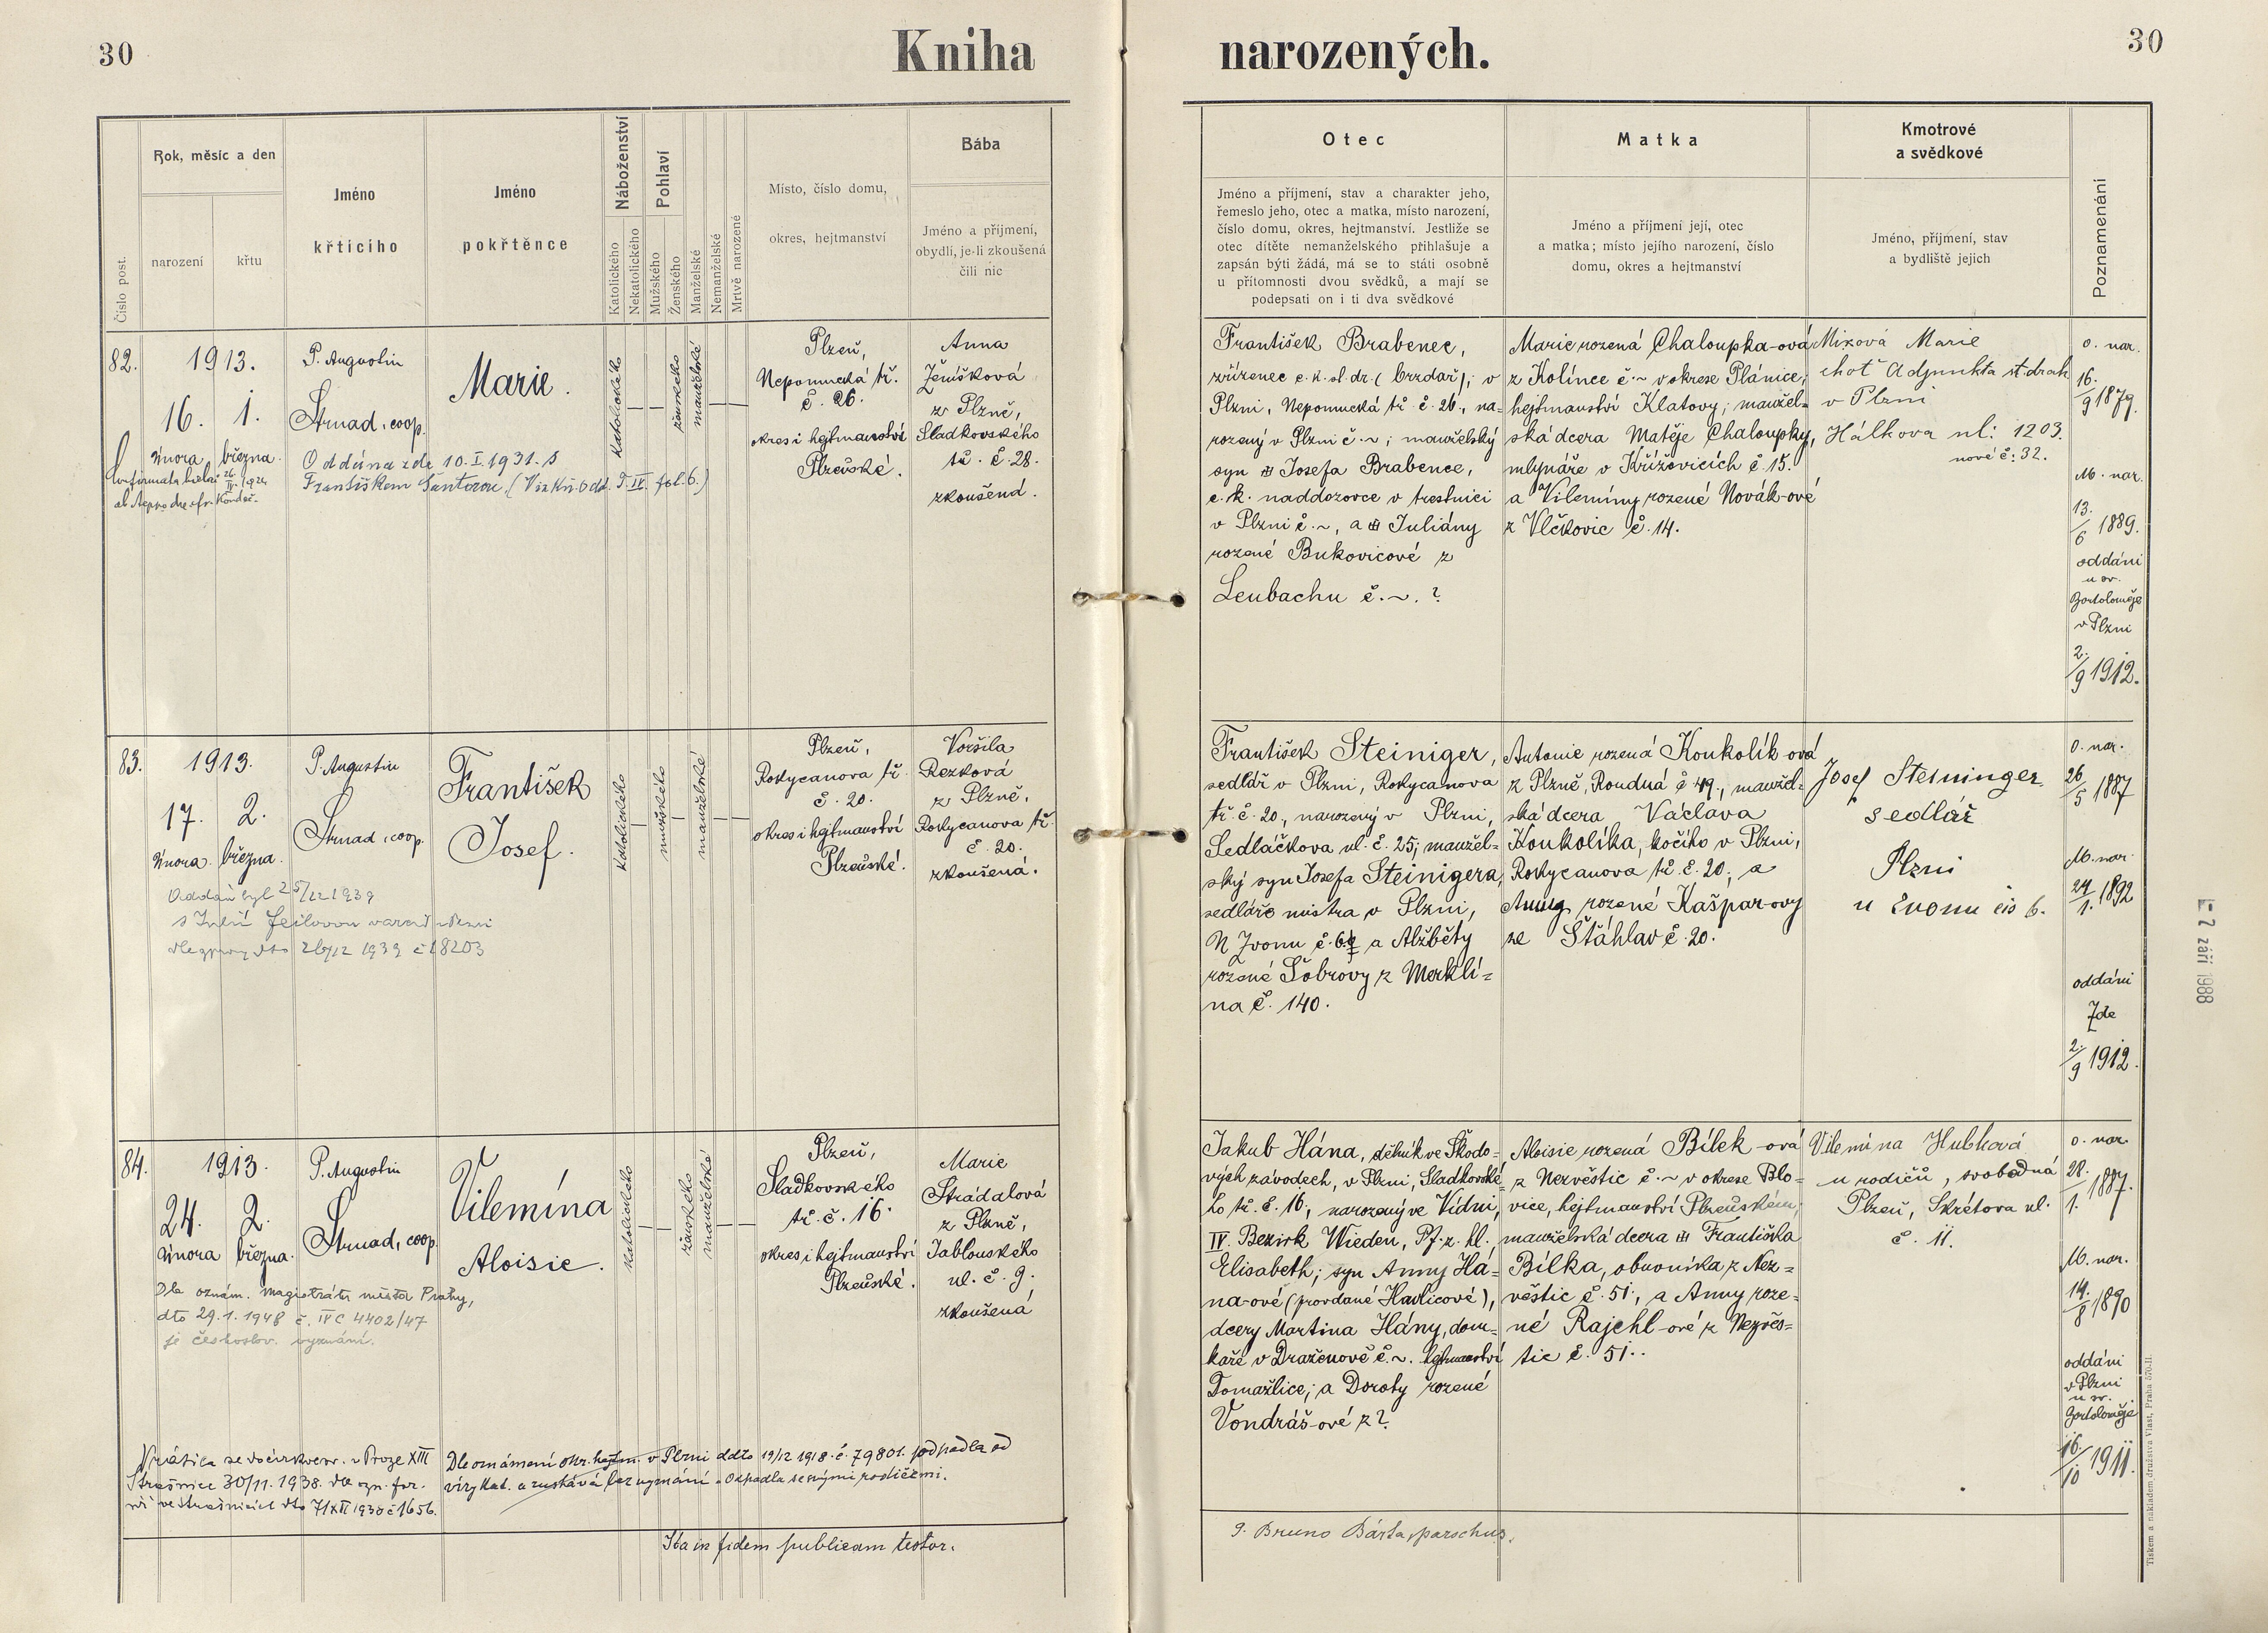 30
Kniha
narozených.
30
Číslo post.
Rok, měsíc a den
narození
křtu
Jméno
křtícího
Jméno
pokřtěnce
Náboženství
Katolického
Nekatolického
Pohlaví
Mužského
Ženského
Manželské
Nemanželské
Mrtvě narozené
Místo, číslo domu,
okres, hejtmanství
Bába
Jméno a příjmení,
obydlí, je-li zkoušená
čili nic
Otec
Jméno a příjmení, stav a charakter jeho,
řemeslo jeho, otec a matka, místo narození,
číslo domu, okres, hejtmanství. Jestliže se
otec dítěte nemanželského přihlašuje a
zapsán býti žádá, má se to státi osobně
u přítomnosti dvou svědků, a mají se
podepsati on i ti dva svědkové
Matka
Jméno a příjmení její, otec
a matka; místo jejího narození, číslo
domu, okres a hejtmanství
Kmotrové
a svědkové
Jméno, příjmení, stav
a bydliště jejich
Poznamenání
82.
1913.
16. 1.
února března.
P. Augustin
Strnad, coop.
Marie.
Oddána zde 10. I. 1931. s
Františkem Šantorou. (Viz kn. odd. T. IV. fol. 6.)
katolického
ženského
manželské
Plzeň,
Nepomucká tř.
č. 26.
okres i hejtmanství
Plzeňské.
Anna
Jeníšková
z Plzně,
Sladkovského
tř. č. 28.
zkoušená.
František Brabenec,
zřízenec c. k. st. dr. (brzdař); v
Plzni, Nepomucká tř. č. 26., na-
rozený v Plzni č. ~; manželský
syn Josefa Brabence,
c. k. naddozorce v trestnici
v Plzni č. ~, a Juliány
rozené Bukovicové z
Leubachu č. ~. ?
Marie rozená Chaloupka-ová
z Kolince č. ~ v okrese Plánice,
hejtmanství Klatovy; manžel-
ská dcera Matěje Chaloupky,
mlynáře v Křížovicích č. 15.
a Vilemíny rozené Novák-ové
z Vlčkovic č. 14.
Mixová Marie
choť Adjunkta st. drah
v Plzni
Hálkova ul: 1203.
nové č: 32.
o. nar.
16./9 1879.
M. nar.
13./6 1889.
oddáni
u sv.
Bartoloměje
v Plzni
2./9 1912.
83.
1913.
17. 2.
února. března.
P. Augustin
Strnad, coop.
František
Josef.
Oddán byl 25/12 1939
s Julií
dto 26/12 1939 č 18203
katolického
mužského
manželské
Plzeň,
Rokycanova tř.
č. 20.
okres i hejtmanství
Plzeňské.
Voršila
Rezková
z Plzně,
Rokycanova tř.
č. 20.
zkoušená.
František Steiniger,
sedlář v Plzni, Rokycanova
tř. č. 20., narozený v Plzni,
Sedláčkova ul. č. 25; manžel=
ský syn Josefa Steinigera,
sedláře mistra v Plzni,
U Zvonu č. 6 a Alžběty
rozené Šobrovy z Merklí=
na č. 140.
Antonie rozená Koukolík-ová
z Plzně, Roudná č 49., manžel=
ská dcera Václava
Koukolíka, kočího v Plzni,
Rokycanova tř. č. 20., a
Anny rozené Kašpar-ovy
ze Štáhlav č. 20.
Josef Steininger
sedlář
Plzni
u Zvonu čís 6.
o. nar.
26/5 1887
M. nar.
24/1. 1892
oddáni
Zde
2./9 1912.
84.
1913.
24. 2.
února března.
P. Augustin
Strnad, coop.
Vilemína
Aloisie.
Dle oznám. magistrátu města Prahy,
dto 29.1.1948 č. IVC 4402/47
je českoslov. vyznání.
katolického
ženského
manželské
Plzeň,
Sladkovského
tř. č. 16.
okres i hejtmanství
Plzeňské.
Marie
Strádalová
z Plzně,
Jablonského
ul. č. 9.
zkoušená
Jakub Hána, dělník ve Škodo=
vých závodech, v Plzni, Sladkovské=
ho tř. č. 16, narozený ve Vídni,
IV. Bezirk Wieden, Pf. z. hl.
Elisabeth; syn Anny Há=
na-ové (provdané Havlicové),
dcery Martina Hány, dom=
káře v Draženově č. ~. hejtmanství
Domažlice; a Doroty rozené
Vondráš-ové z ?
Aloisie rozená Bílek-ová
z Nezvěstic č. ~ v okrese Blo=
vice, hejtmanství Plzeňském,
manželská dcera Františka
Bílka, obuvníka z Nez=
věstic č. 51., a Anny roze=
né Rajchl-ové z Nezvěs=
tic č. 51..
Vilemína Hubková
u rodičů, svobodná
Plzeň, Skrétova ul.
č. 11.
o. nar.
28./1. 1887.
M. nar.
14./8 1890
oddáni
v Plzni
u sv.
Bartoloměje
16./10 1911.
Vrátila se do církve v Praze XIII
Strašnice 30/11. 1938. dle ozn. far.
ve Strašnicích dto 7/XII 1938 č 1656.
Dle oznámení okr. hejtm. v Plzni ddto 19/12 1918 č. 79801. odpadla od
víry kat. a zůstává bez vyznání. Odpadla se svými rodičemi.
Ita in fidem publicam testor.
P. Bruno Bárta, parochus.
– 7 září 1988
Tiskem a nákladem družstva Vlast, Praha 570-II.